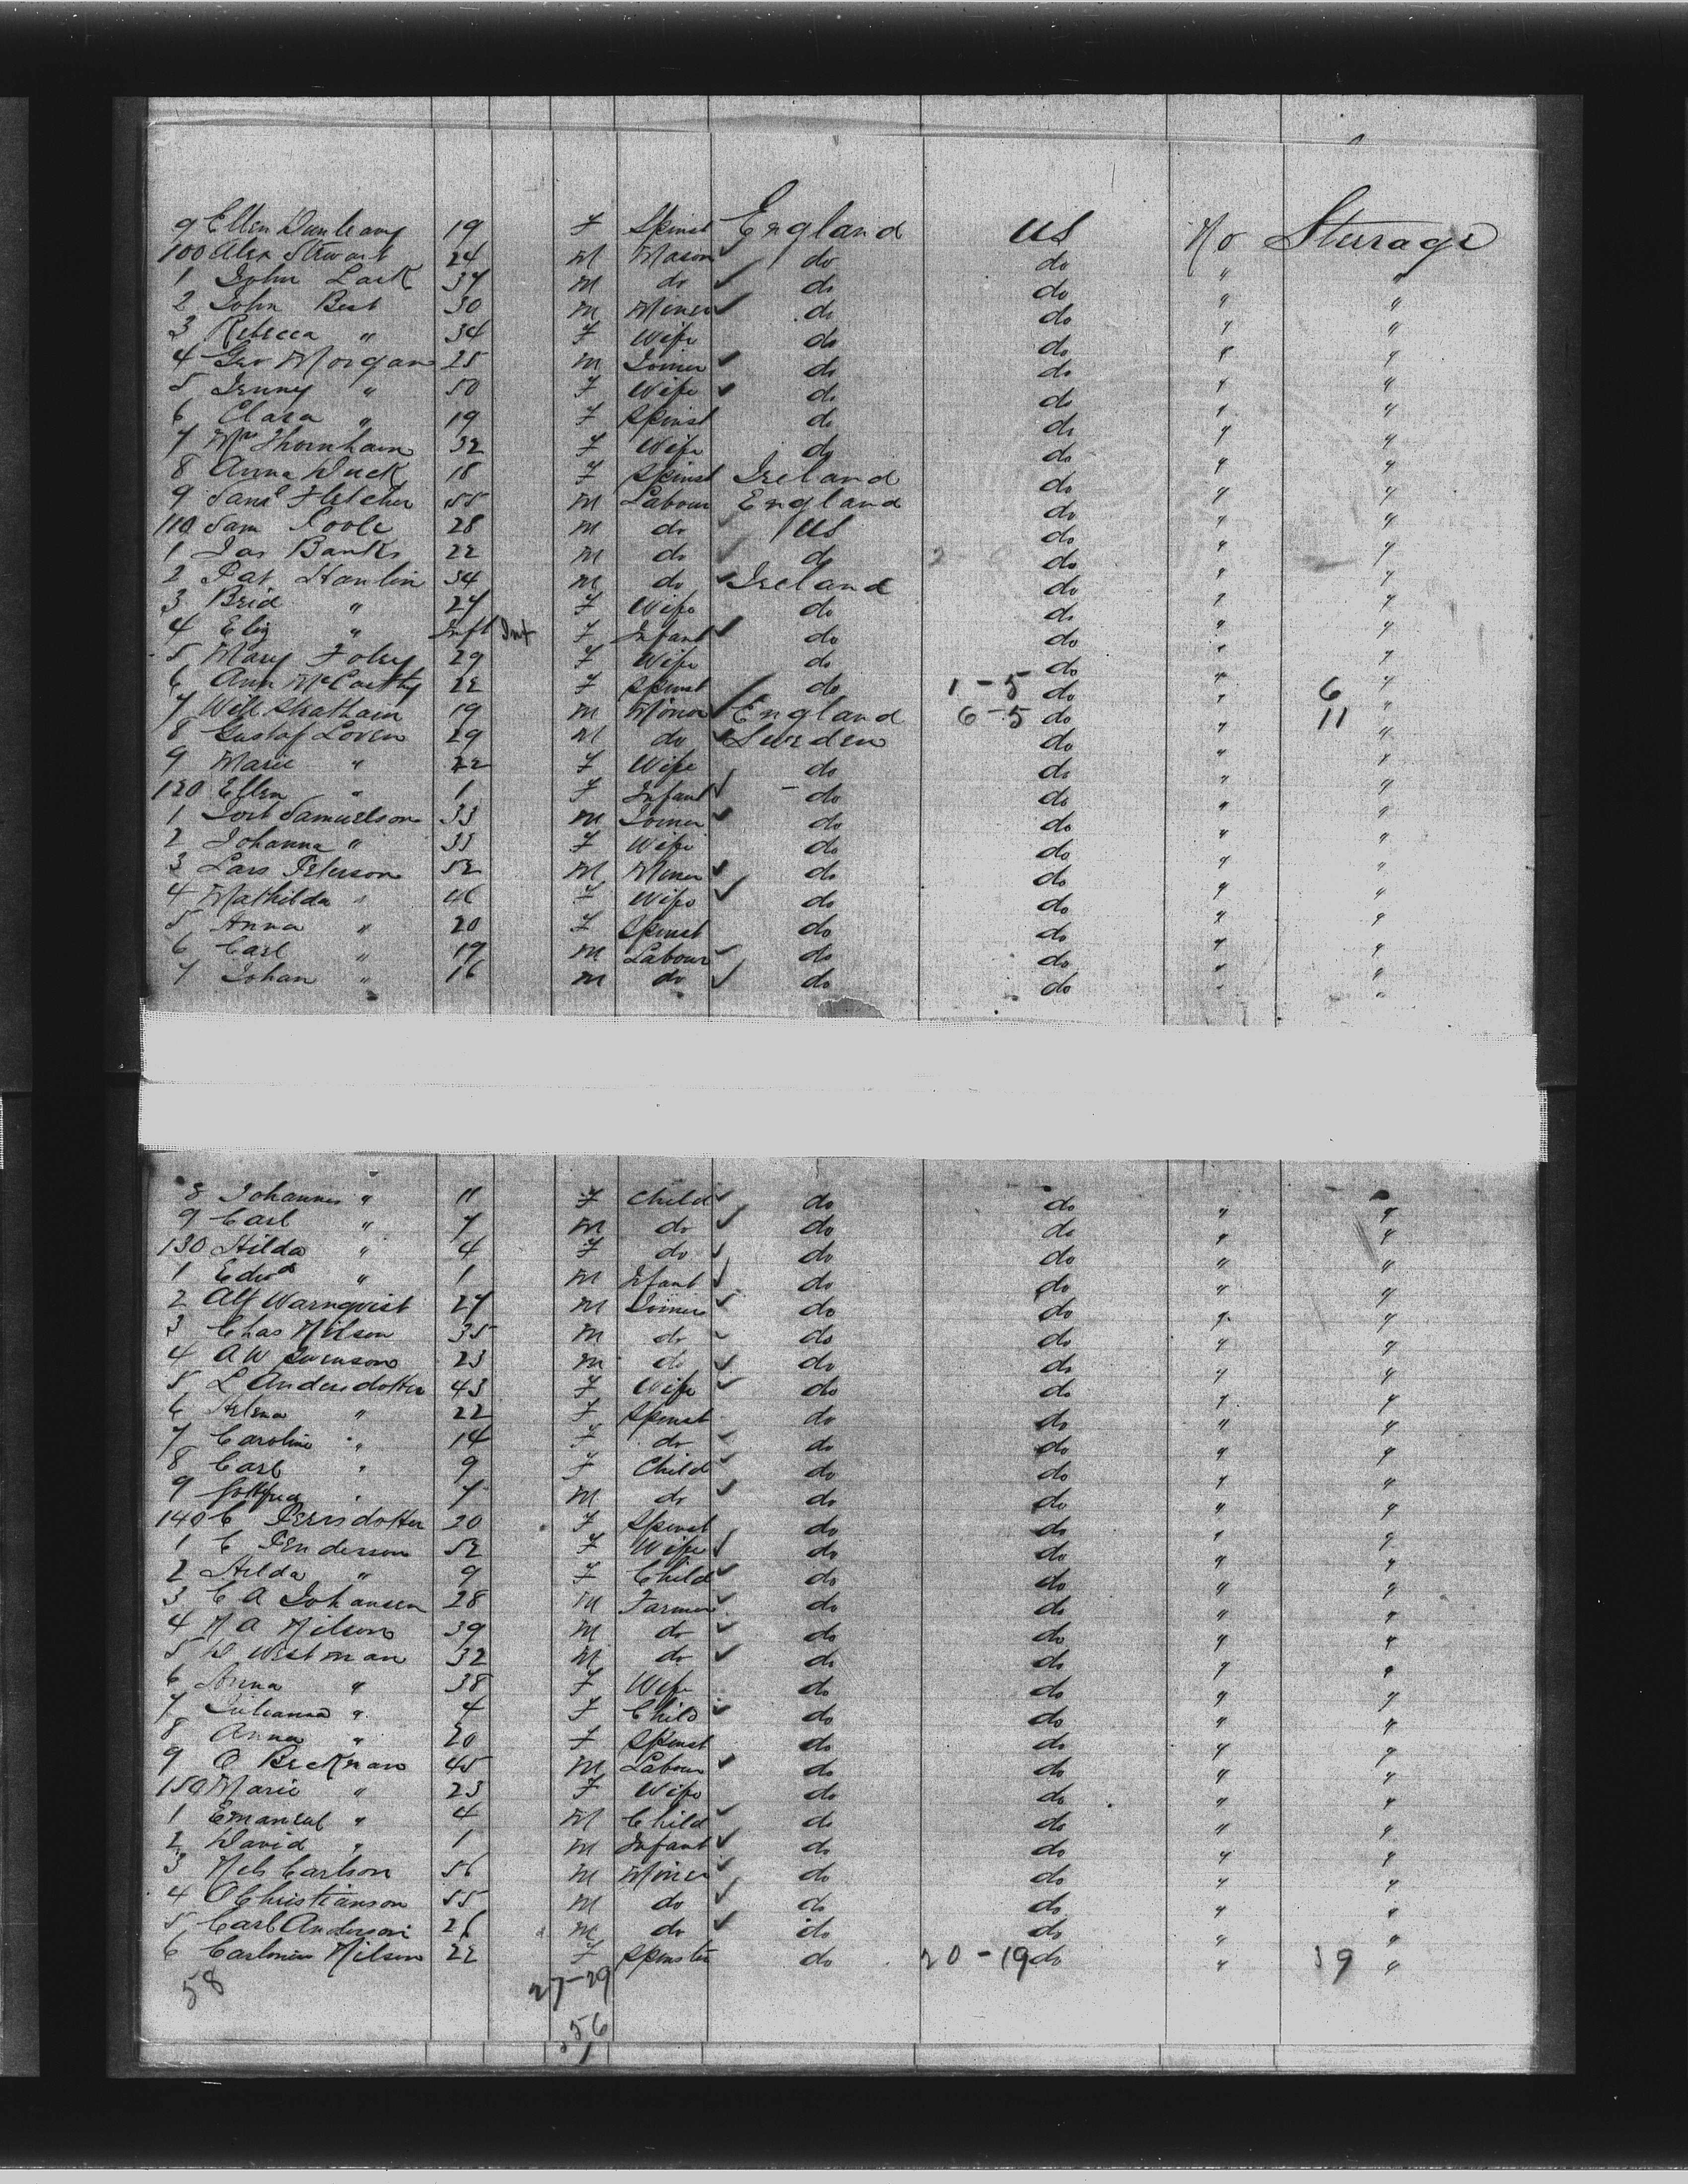 9 Ellen Dunleavy 19 F Spinst England US No Steerage
100 Alex Stewart 24 M Mason do do " "
1 John Lark 37 M do do do " "
2 John Best 30 M Miner do do " "
3 Rebecca " 34 F Wife do do " "
4 Geo Morgan 25 M Joiner do do " "
5 Jenny " 50 F Wife do do " "
6 Clara " 19 F Spinst do do " "
7 Mrs Thornham 32 F Wife do do " "
8 Anna Duck 18 F Spinst Ireland do " "
9 Saml Fletcher 55 M Labour England do " "
110 Sam Poole 28 M do US do " "
1 Jas Banks 22 M do do do " "
2 Pat Hanlin 34 M do Ireland do " "
3 Brid " 27 F Wife do do " "
4 Eliz " Inft Inf F Infant do do " "
5 Mary Foley 29 F Wife do do " "
6 Ann McCarthy 22 F Spinst do 1-5 do " 6 "
7 Will Statham 19 M Minor England 6-5 do " 11 "
8 Gustaf Loven 29 M do Sweden do " "
9 Marie " 22 F Wife do do " "
120 Ellen " 1 F Infant do do " "
1 Samuelson 33 M Joiner do do " "
2 Johanna " 33 F Wife do do " "
3 Lars Peterson 52 M Miner do do " "
4 Mathilda " 46 F Wife do do " "
5 Anna " 20 F Spinst do do " "
6 Carl " 19 M Labour do do " "
7 Johan " 16 M do do do " "
8 Johannes " 11 F Child do do " "
9 Carl " 7 M do do do " "
130 Hilda " 4 F do do do " "
1 Edwd " 1 M Infant do do " "
2 Alf Warnqvist 27 M Joiner do do " "
3 Chas Nilson 35 M do do do " "
4 A W Swenson 23 M do do do " "
5 L Andersdotter 43 F Wife do do " "
6 Helena " 22 F Spinst do do " "
7 Caroline " 14 F do do do " "
8 Carl " 9 F Child do do " "
9 Gottfried " 7 M do do do " "
140 C Persdotter 20 F Spinst do do " "
1 C Penderson 52 F Wife do do " "
2 Hilda " 9 F Child do do " "
3 C A Johansen 28 M Farmer do do " "
4 N A Nilson 39 M do do do " "
5 D Westman 32 M do do do " "
6 Anna " 38 F Wife do do " "
7 Julianna " 4 F Child do do " "
8 Anna " 20 F Spinst do do " "
9 O Beckman 45 M Labour do do " "
150 Marie " 23 F Wife do do " "
1 Emanuel " 4 M Child do do " "
2 David " 1 M Infant do do " "
3 Nels Carlson 56 M Miner do do " "
4 O Christianson 55 M do do do " "
5 Carl Anderson 26 M do do do " "
6 Nilson 22 F Spinster do 20-19 do " 39 "
58 27-29
56